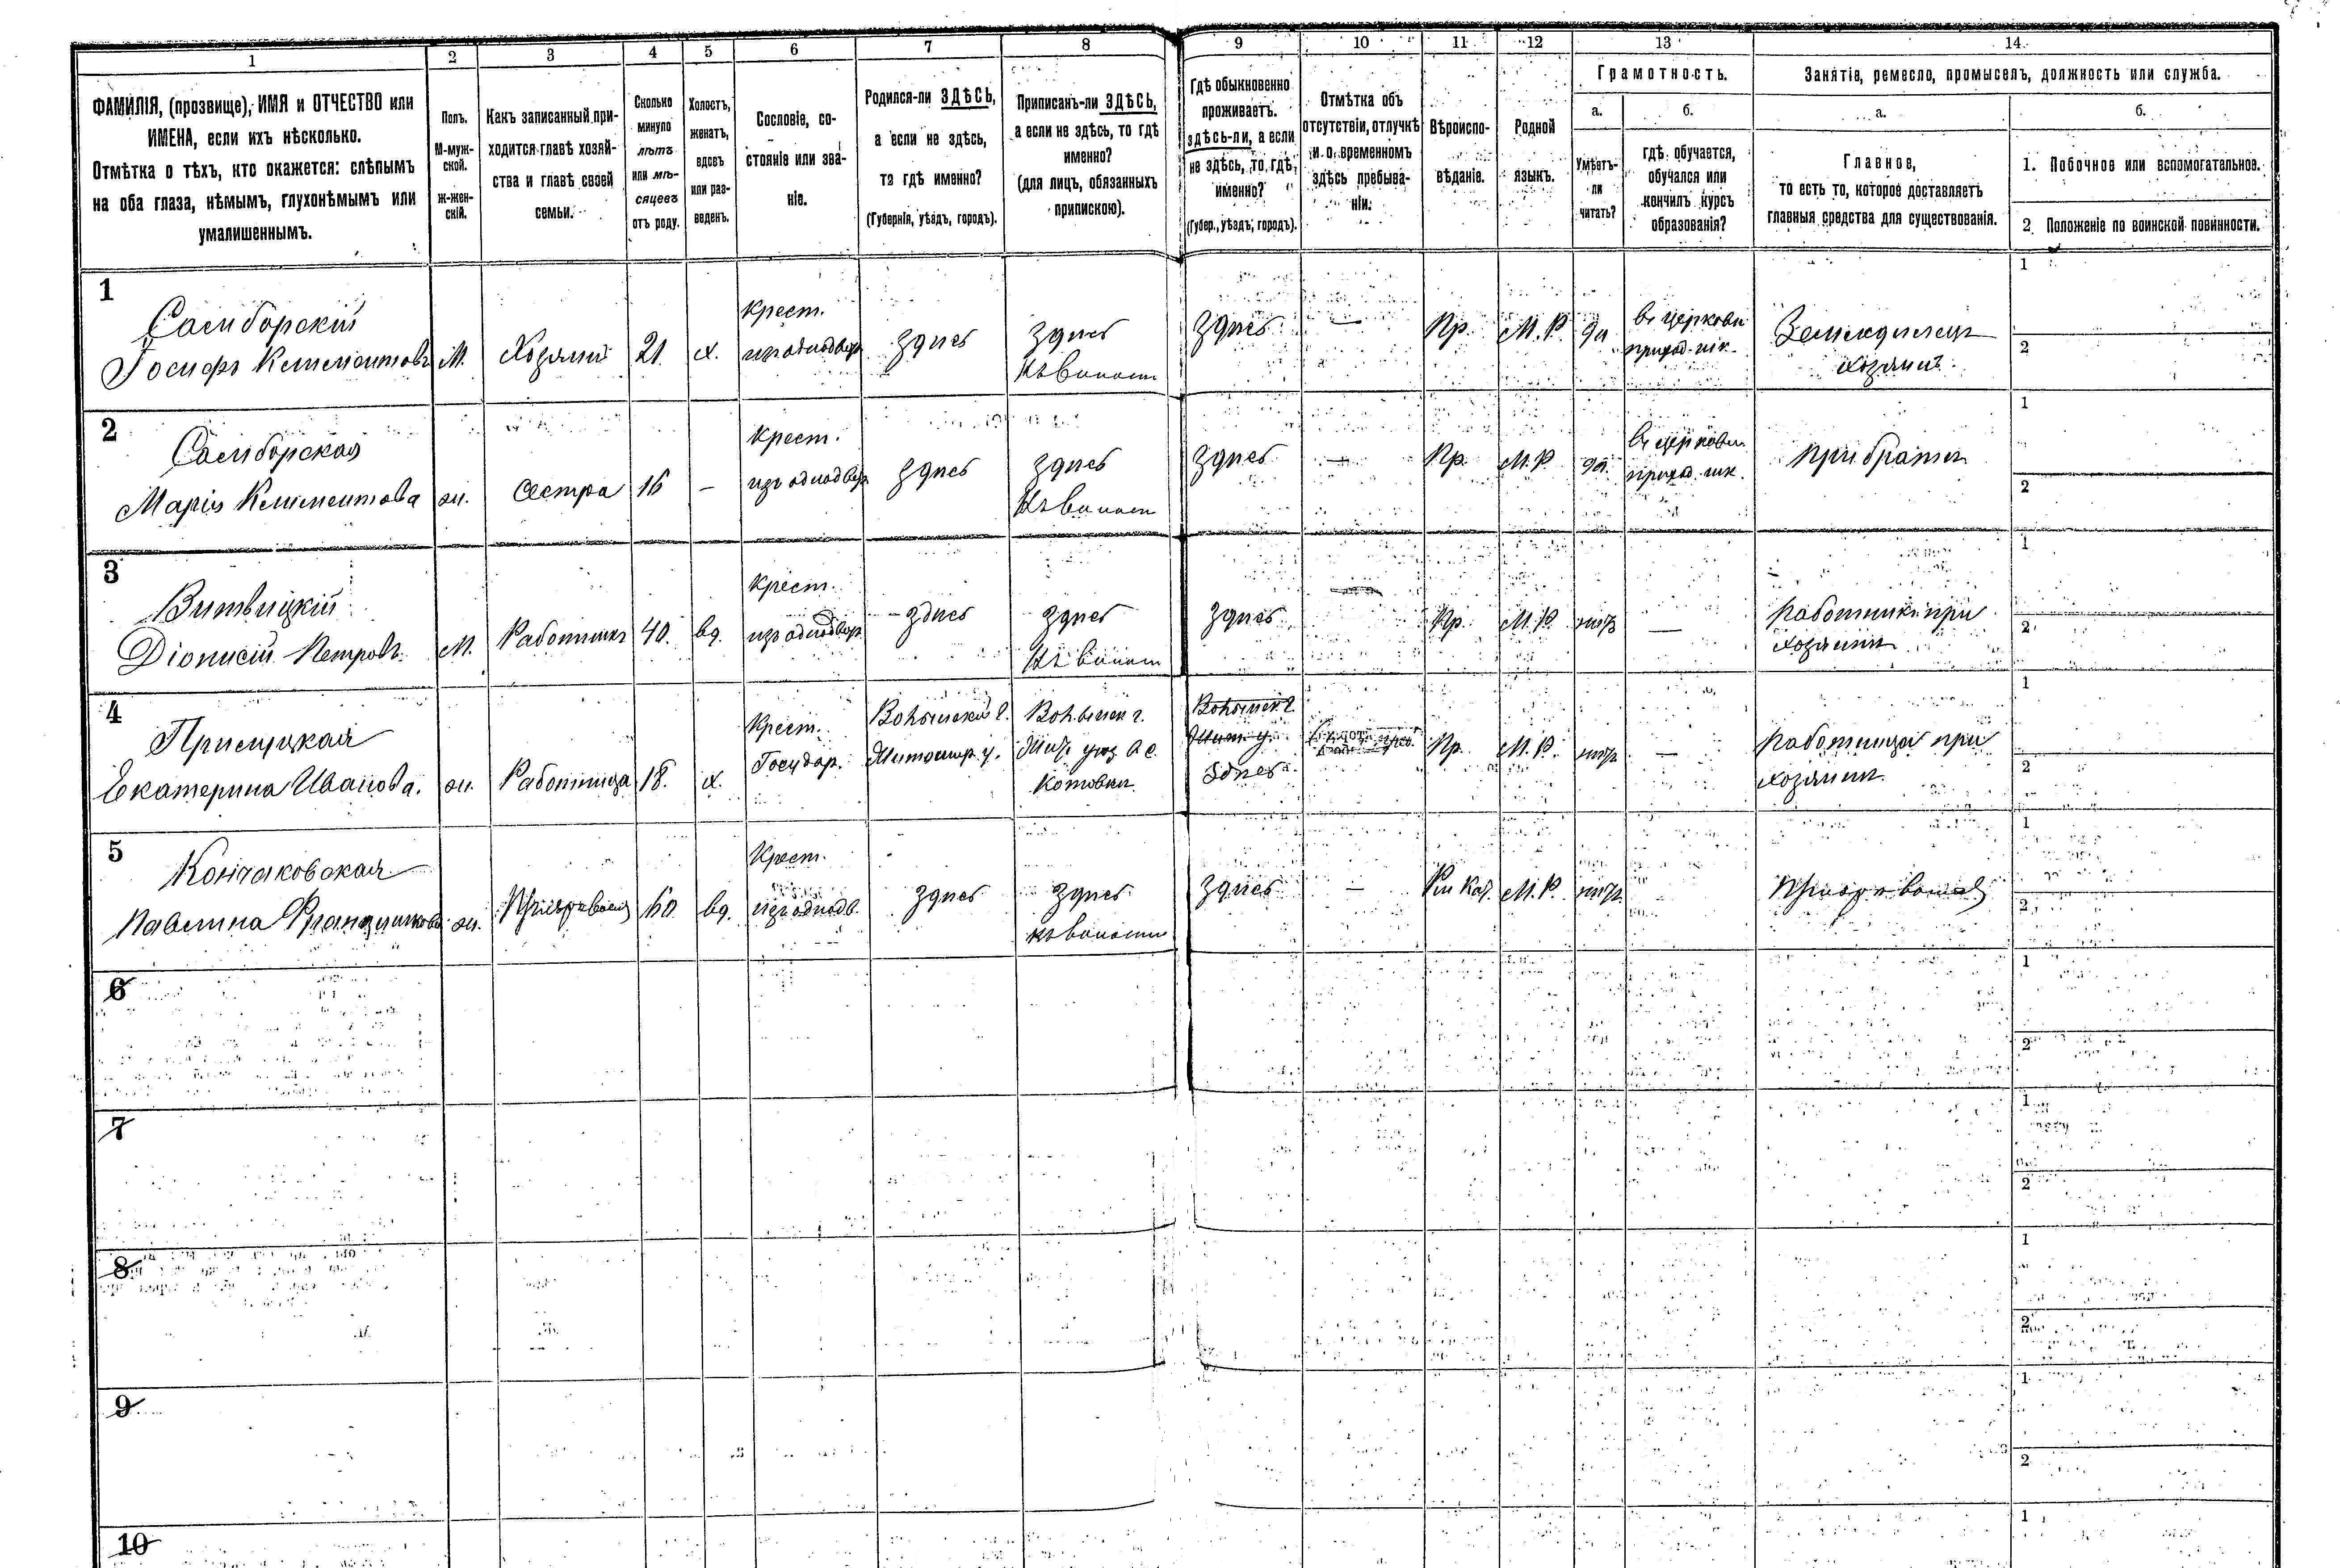 1 2 3 4 5 6 7 8 9 10 11 12 13 14
ФАМИЛІЯ, (прозвище), ИМЯ и ОТЧЕСТВО или
ИМЕНА, если ихъ нѣсколько.
Отмѣтка о тѣхъ, кто окажется: слѣпымъ
на оба глаза, нѣмымъ, глухонѣмымъ или
умалишеннымъ.
Полъ.
М-муж-
ской.
ж-жен-
скій.
Какъ записанный при-
ходится главѣ хозяй-
ства и главѣ своей
семьи.
Сколько
минуло
лѣтъ
или мѣ-
сяцевъ
отъ роду.
Холостъ,
женатъ,
вдовъ
или раз-
веденъ.
Сословіе, со-
стояніе или зва-
ніе.
Родился-ли ЗДѢСЬ,
а если не здѣсь,
то гдѣ именно?
(Губернія, уѣздъ, городъ).
Приписанъ-ли ЗДѢСЬ,
а если не здѣсь, то гдѣ
именно?
(для лицъ, обязанныхъ
припискою).
Гдѣ обыкновенно
проживаетъ.
здѣсь-ли, а если
не здѣсь, то гдѣ
именно?
(Губер., уѣздъ, городъ).
Отмѣтка объ
отсутствіи, отлучкѣ
и о временномъ
здѣсь пребыва-
ніи.
Вѣроиспо-
вѣданіе.
Родной
языкъ.
Грамотность.
а.
Умѣетъ-
ли
читать?
б.
гдѣ обучается,
обучался или
кончилъ курсъ
образованія?
Занятіе, ремесло, промыселъ, должность или служба.
а.
Главное,
то есть то, которое доставляетъ
главныя средства для существованія.
б.
1. Побочное или вспомогательное.
2. Положеніе по воинской повинности.
1
Самборскій
Іосифъ Климентовъ
М.
Хозяинъ
21
х.
Крест.
изъ однодвор
здѣсь
здѣсь
Къ волост
здѣсь
—
Пр.
М. Р.
да
въ церковн
приход. шк.
Земледѣлецъ
хозяинъ.
1
2
2
Самборская
Марія Климентова
ж.
Сестра
16
—
Крест.
изъ однодвор
здѣсь
здѣсь
Къ волост
здѣсь
—
Пр.
М. Р.
да.
въ церковн.
приход. шк.
при братѣ
1
2
3
Витвицкій
Діонисій Петровъ.
М.
Работникъ
40.
вд.
Крест.
изъ однодвор.
здѣсь
здѣсь
Къ волост
здѣсь
—
Пр.
М. Р.
нѣтъ
—
Работникъ при
хозяинѣ
1
2
4
Екатерина Иванова.
ж.
Работница
18.
х.
Крест.
Государ.
Волынской г.
Житомир. у.
Волынск г.
Жит уѣз
Котовки
Волынск. г.
Жит. у.
Здѣсь
Пр.
М. Р.
нѣтъ
—
Работница при
хозяинѣ.
1
2
5
Кончаковская
Павлина Францишкова
ж.
60.
вд.
Крест.
изъ однодв.
здѣсь
здѣсь
къ волости
здѣсь
—
Рим Кат.
М. Р.
нѣтъ
1
2
6
1
2
7
1
2
8
1
2
9
1
2
10
1